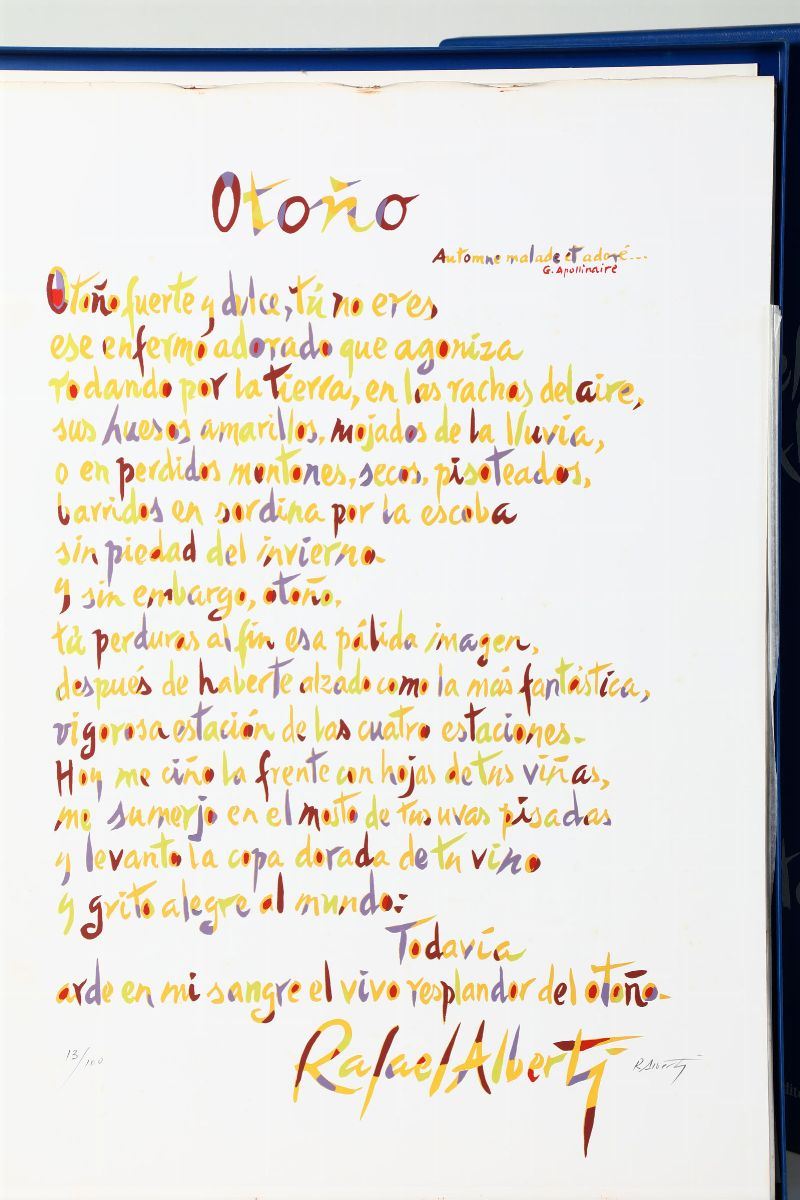 Otoño
Automne malade et adoré...
G. Apollinaire
Otoño fuerte y dulce, tú no eres
ese enfermo adorado que agoniza
rodando por la tierra, en las rachas del aire,
sus huesos amarillos, mojados de la lluvia,
o en perdidos montones, secos, pisoteados,
barridos en sordina por la escoba
sin piedad del invierno.
Y sin embargo, otoño,
tú perduras al fin esa pálida imagen,
después de haberte alzado como la más fantástica,
vigorosa estación de las cuatro estaciones.
Hoy me ciño la frente con hojas de tus viñas,
me sumerjo en el mosto de tus uvas pisadas
y levanto la copa dorada de tu vino
y grito alegre al mundo:
Todavía
arde en mi sangre el vivo resplandor del otoño.
Rafael Alberti
13/100
R. Alberti